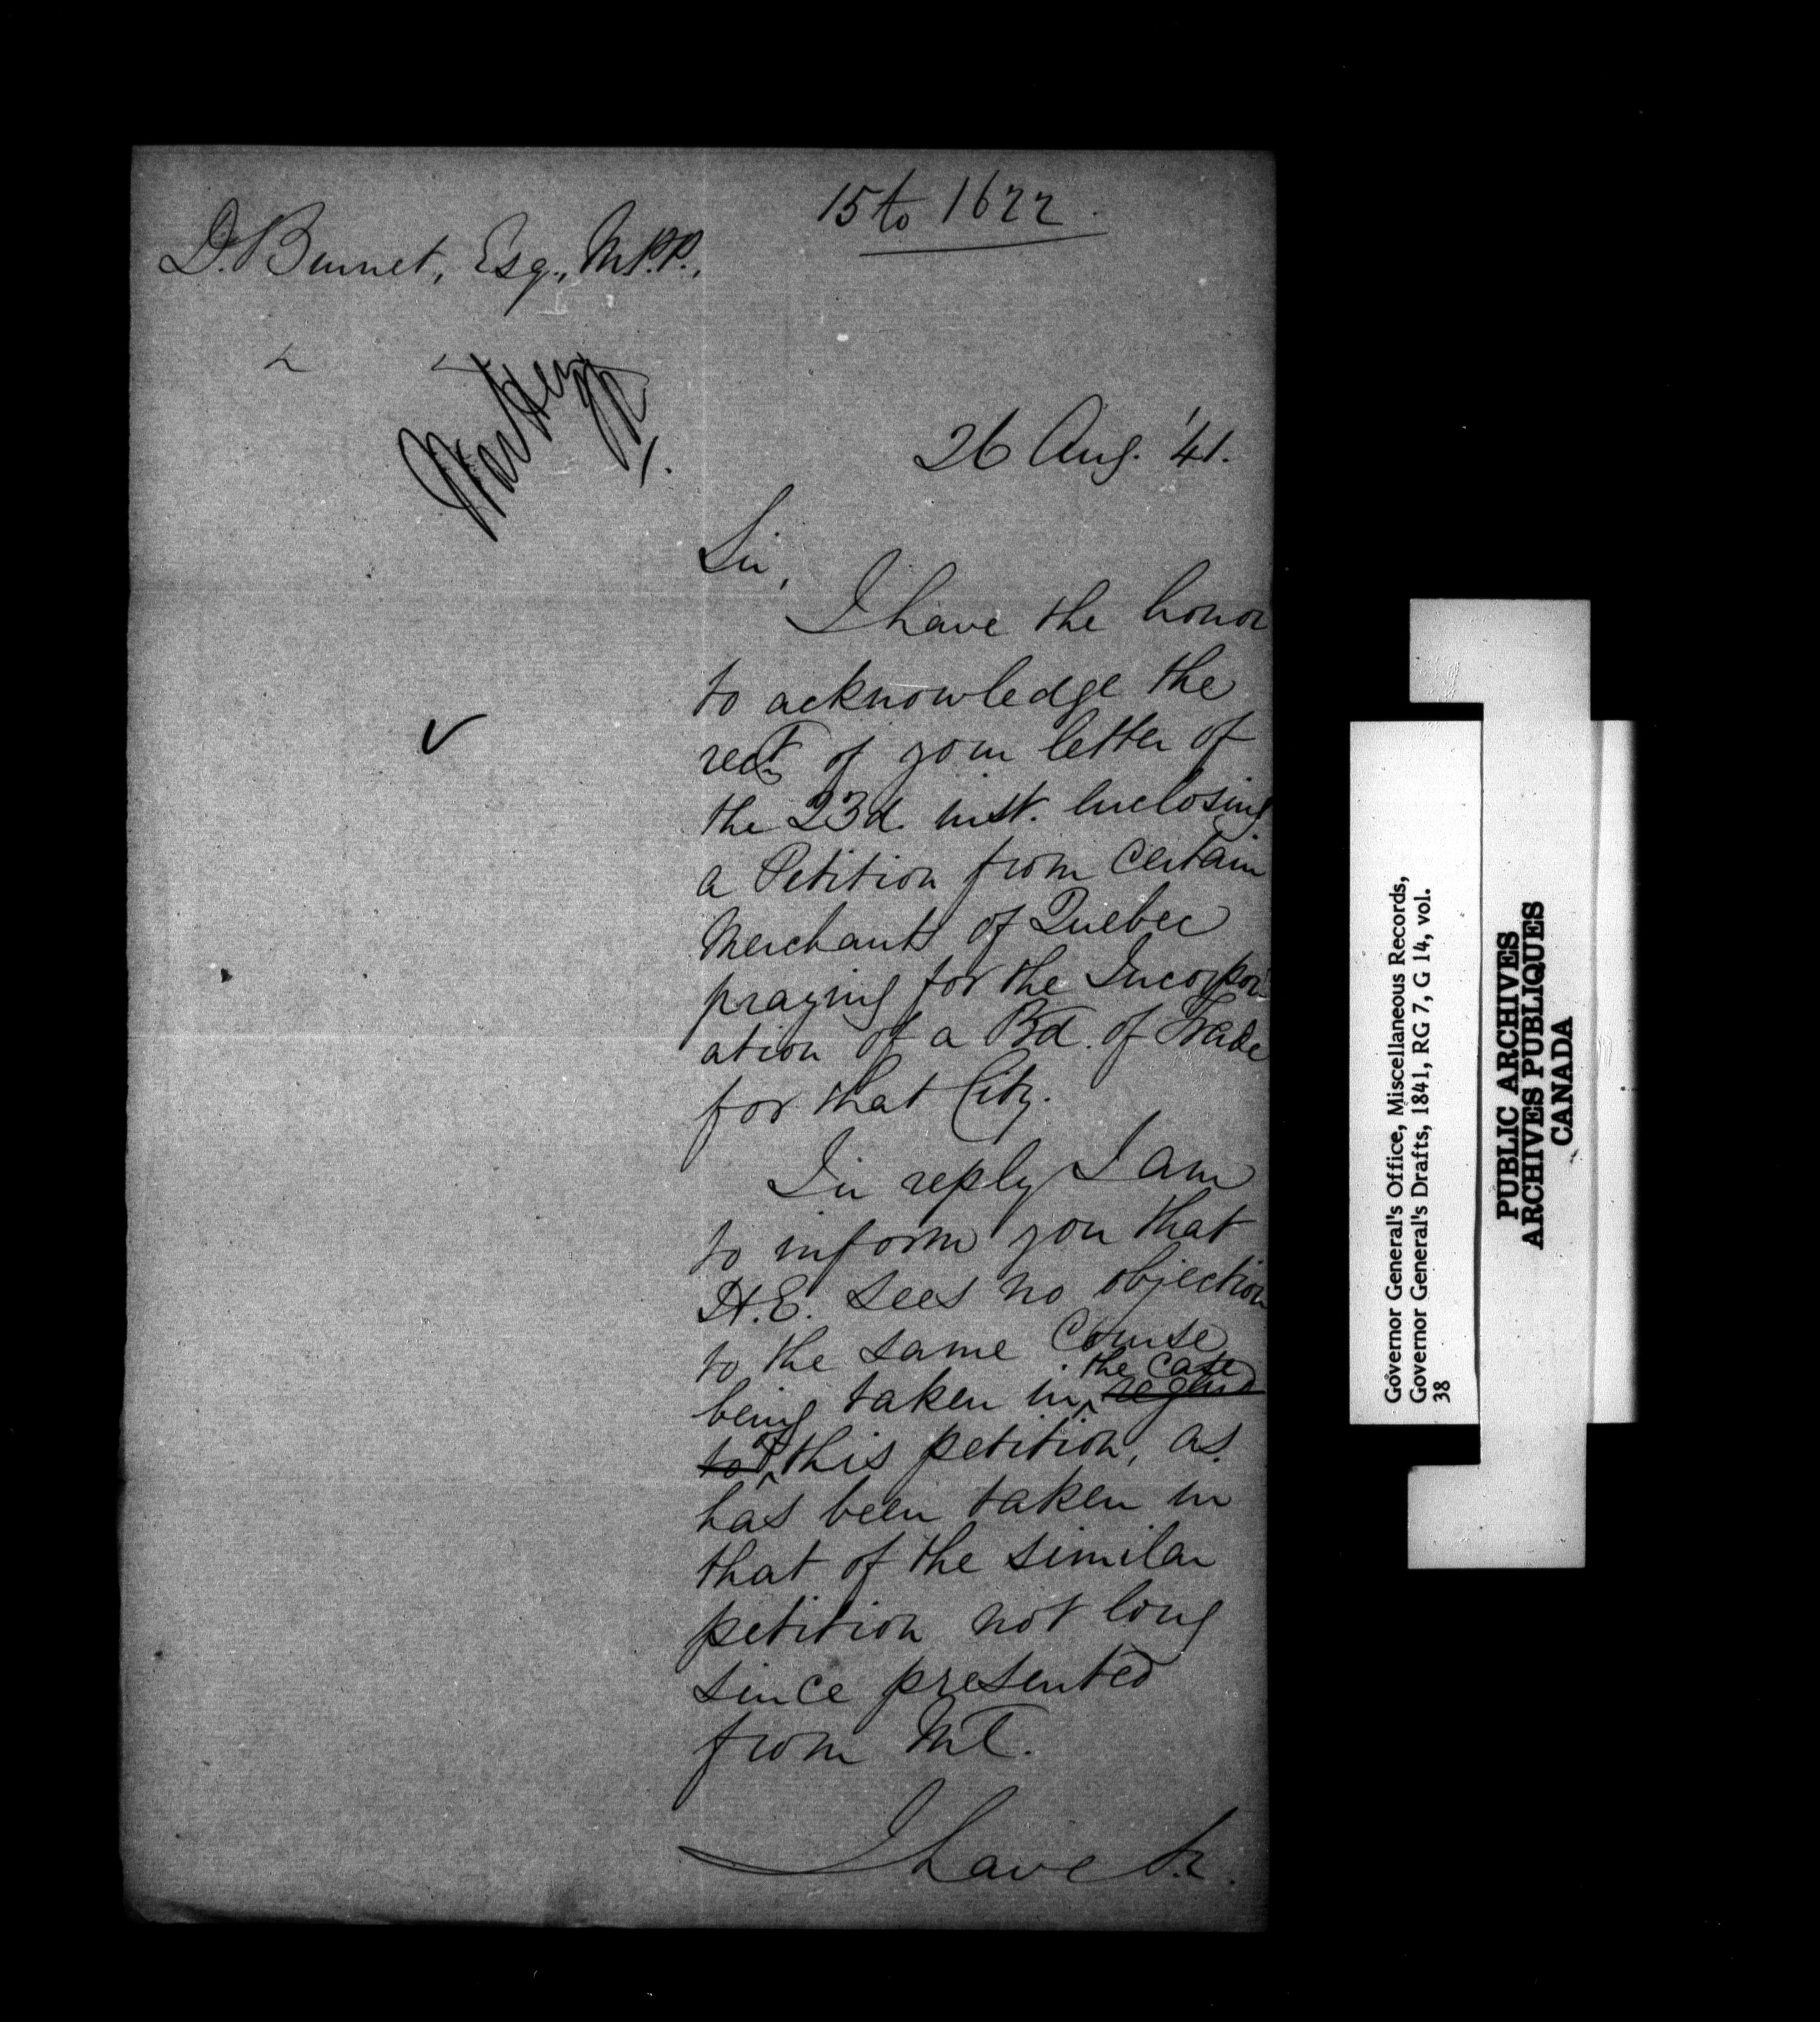 15 to 1622.
D. Burnet, Esq., M.P.P.,
26 Aug. '41.
Sir,
I have the honor
to acknowledge the
rect. of your letter of
the 23d. inst. enclosing
a Petition from certain
Merchants of Quebec
praying for the Incorpor-
ation of a Bd. of Trade
for that City.
In reply I am
to inform you that
H.E. sees no objection
to the same course
being taken in the case
regard
to of this petition, as
has been taken in
that of the similar
petition not long
since presented
from Ml.
I have &c.
Governor General's Office, Miscellaneous Records,
Governor General's Drafts, 1841, RG 7, G 14, vol.
38
PUBLIC ARCHIVES
ARCHIVES PUBLIQUES
CANADA